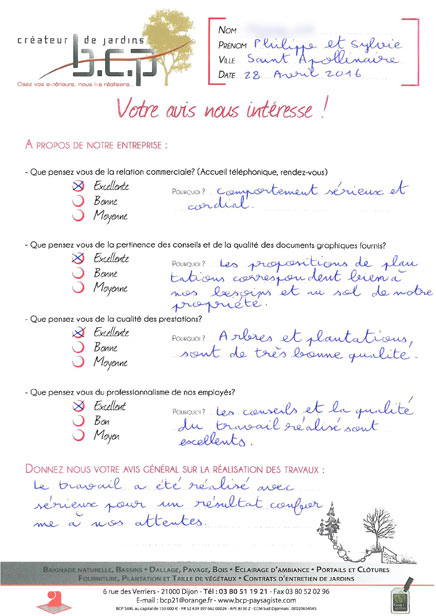 créateur de jardins
b.c.p
Osez vos extérieurs, nous les réalisons...
NOM
PRÉNOM Philippe et Sylvie
VILLE Saint Apollinaire
DATE 28 Avril 2016
Votre avis nous intéresse !
A PROPOS DE NOTRE ENTREPRISE :
- Que pensez vous de la relation commerciale? (Accueil téléphonique, rendez-vous)
Excellente
Bonne
Moyenne
POURQUOI ? comportement sérieux et
cordial.
- Que pensez vous de la pertinence des conseils et de la qualité des documents graphiques fournis?
Excellente
Bonne
Moyenne
POURQUOI ? Les propositions de plan
tations correspondent bien à
nos besoins et au sol de notre
propriété.
- Que pensez vous de la qualité des prestations?
Excellente
Bonne
Moyenne
POURQUOI ? Arbres et plantations,
sont de très bonne qualité.
- Que pensez vous du professionalisme de nos employés?
Excellent
Bon
Moyen
POURQUOI ? Les conseils et la qualité
du travail réalisé sont
excellents.
DONNEZ NOUS VOTRE AVIS GÉNÉRAL SUR LA RÉALISATION DES TRAVAUX :
Le travail a été réalisé avec
sérieux pour un résultat confor
me à nos attentes.
BAIGNADE NATURELLE, BASSINS • DALLAGE, PAVAGE, BOIS • ECLAIRAGE D'AMBIANCE • PORTAILS ET CLÔTURES
FOURNITURE, PLANTATION ET TAILLE DE VÉGÉTAUX • CONTRATS D'ENTRETIEN DE JARDINS
6 rue des Verriers - 21000 Dijon - Tél : 03 80 51 19 21 - Fax 03 80 52 02 96
E-mail : bcp21@orange.fr - www.bcp-paysagiste.com